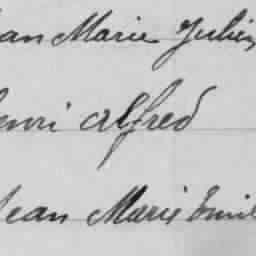 Jean Marie Julien
Henri Alfred
Jean Marie Emile